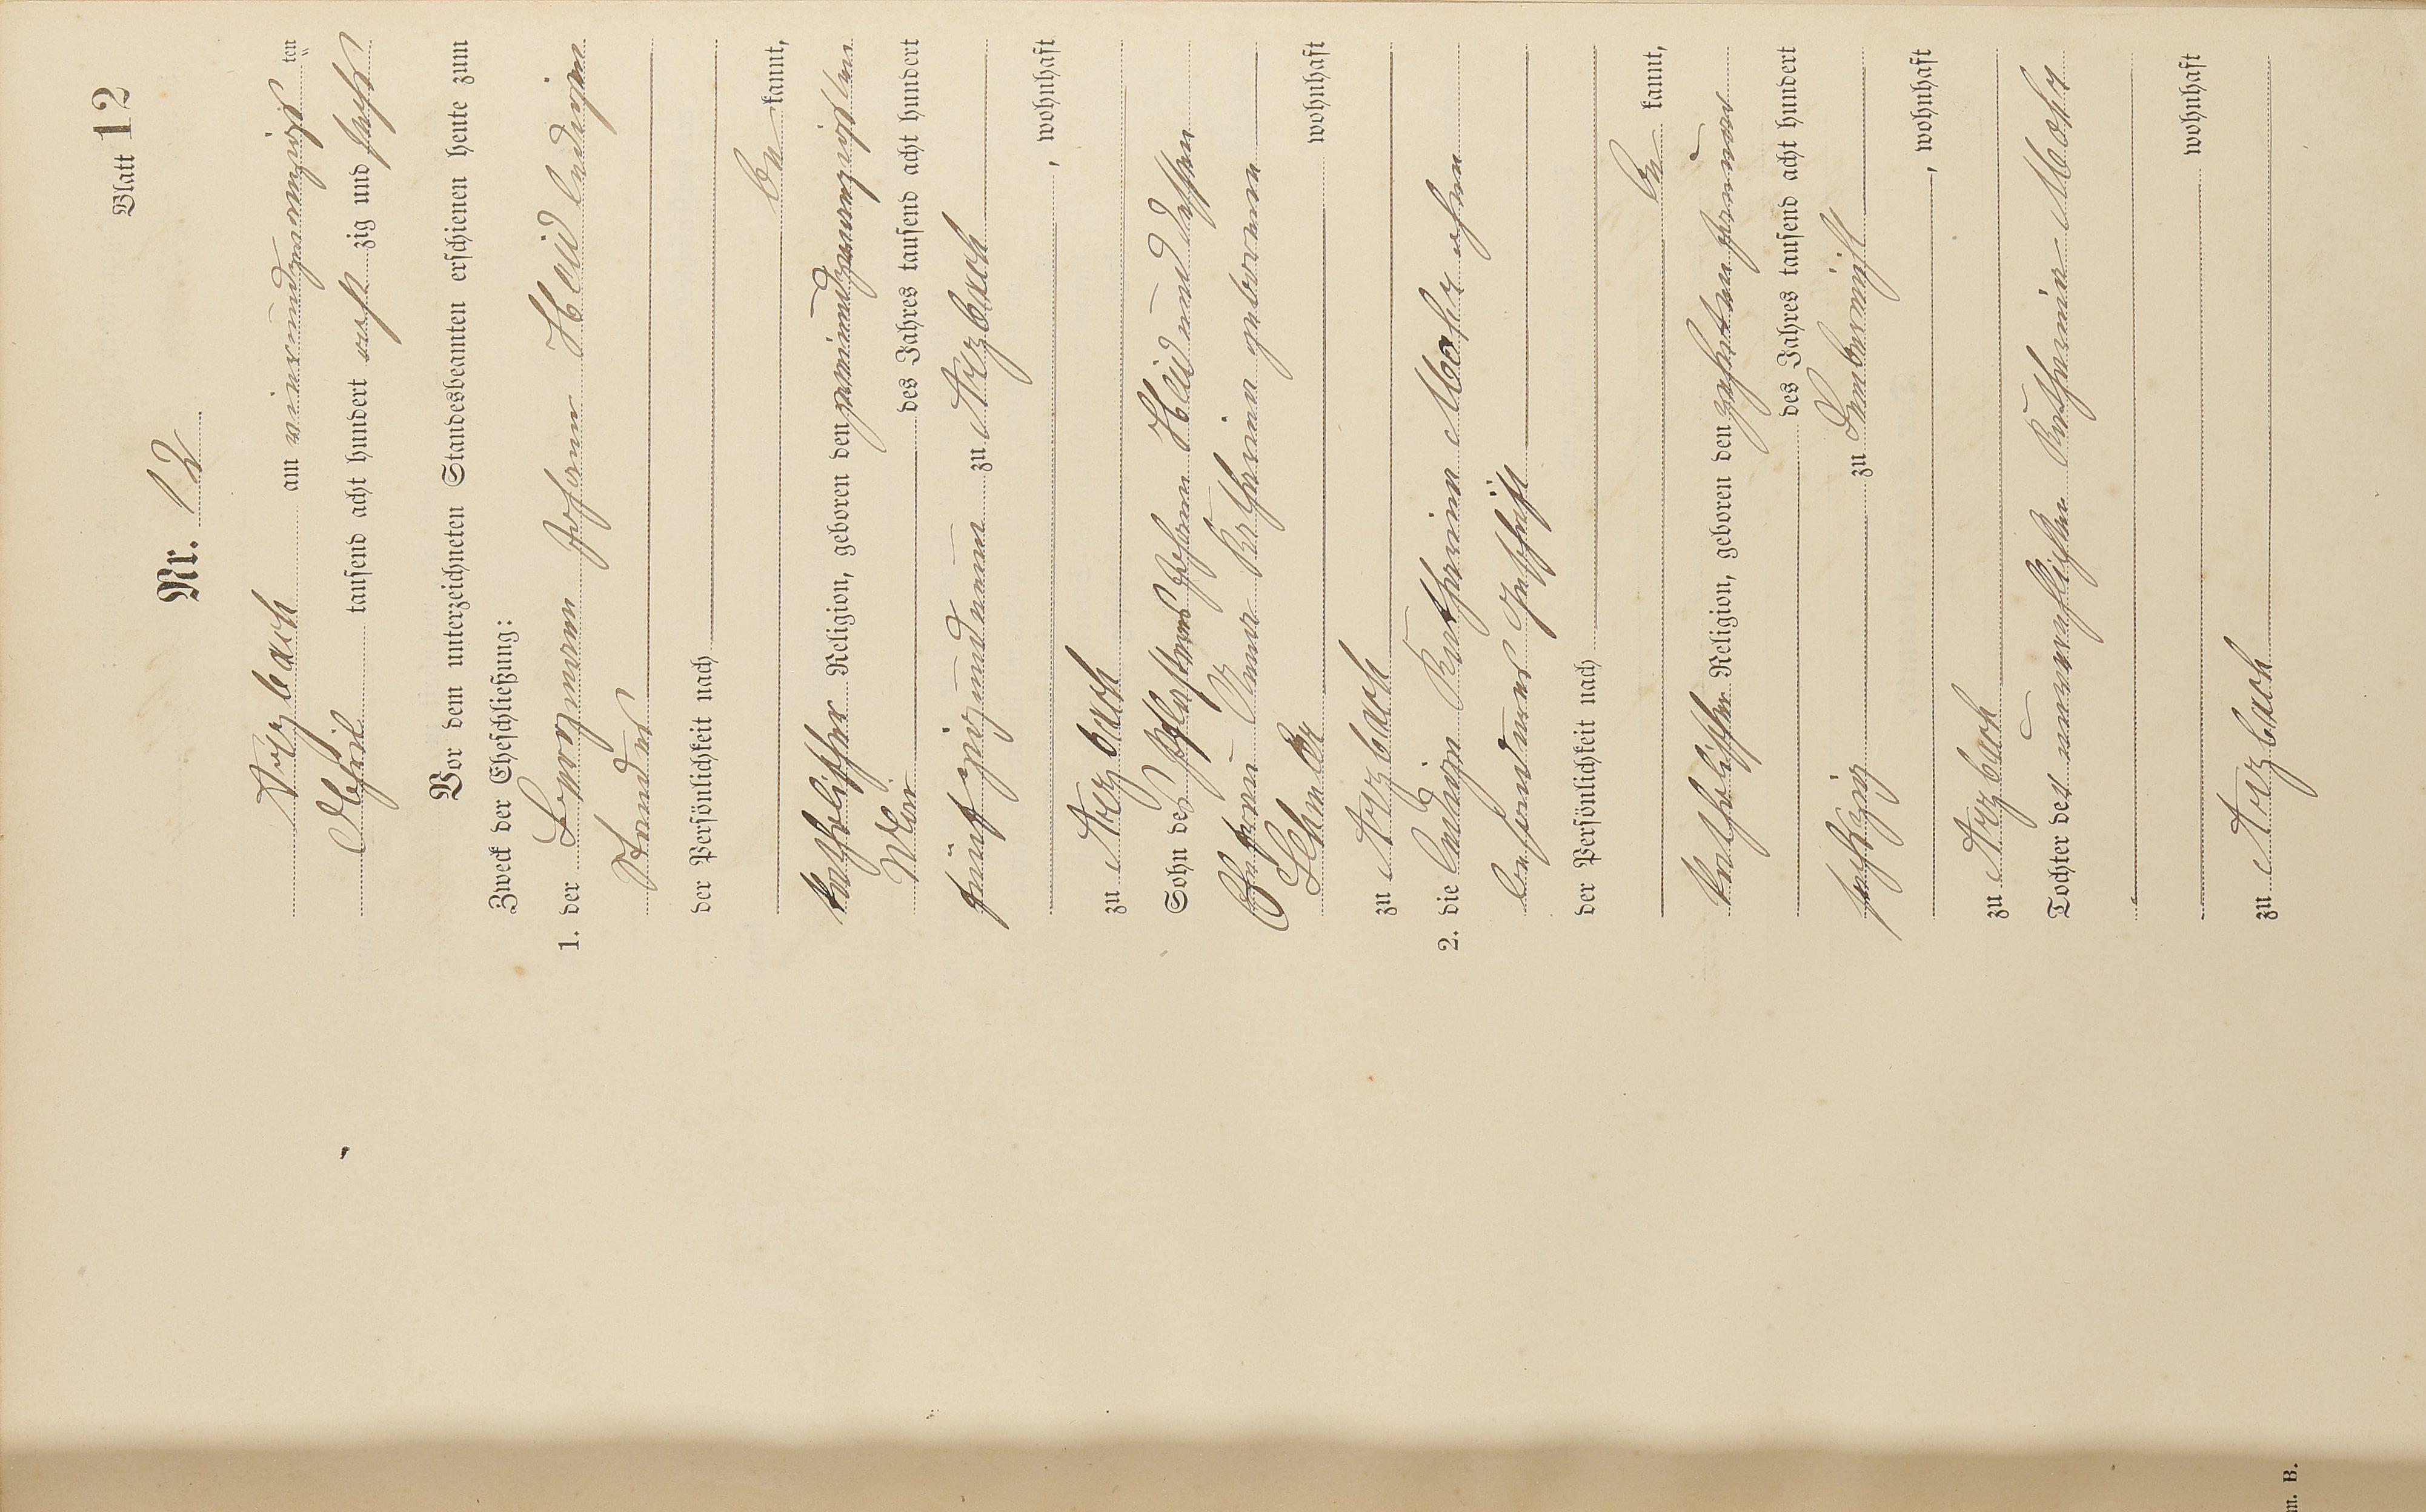 Blatt 12
Nr. 12
Arzbach am vierundzwanzigsten
April tausend acht hundert acht zig und sechs
Vor dem unterzeichneten Standesbeamten erschienen heute zum
Zweck der Eheschließung:
1. der Bergmann Johann Heid ledigen
Standes
der Persönlichkeit nach
be kannt,
katholischer Religion, geboren den neunundzwanzigsten
Mai des Jahres tausend acht hundert
fünfzigundneun zu Arzbach
, wohnhaft
zu Arzbach
Sohn des Johann Heid und dessen
Ehefrau Anna Katharina geborenen
wohnhaft
zu Arzbach
2. die ledigen Katharina Mohr ohne
besonderes Geschäft
der Persönlichkeit nach
be kannt,
katholischer Religion, geboren den zehnten Januar
des Jahres tausend acht hundert
sechzig zu
, wohnhaft
zu Arzbach
Tochter der unverehelichten Katharina Mohr
wohnhaft
zu Arzbach
m. B.